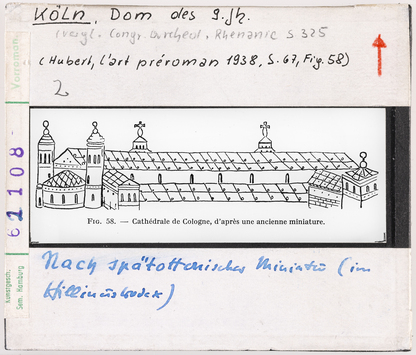 KÖLN, Dom des 9. Jh.
(vergl. Congr. Archéol. Rhénanie S 325
(Hubert, l'art préroman 1938, S. 67, Fig. 58)
2
Vorroman.
61108
Kunstgesch.
Sem. Hamburg
FIG. 58. — Cathédrale de Cologne, d'après une ancienne miniature.
Nach spätottonischer Miniatur (im
Hillinuskodex)